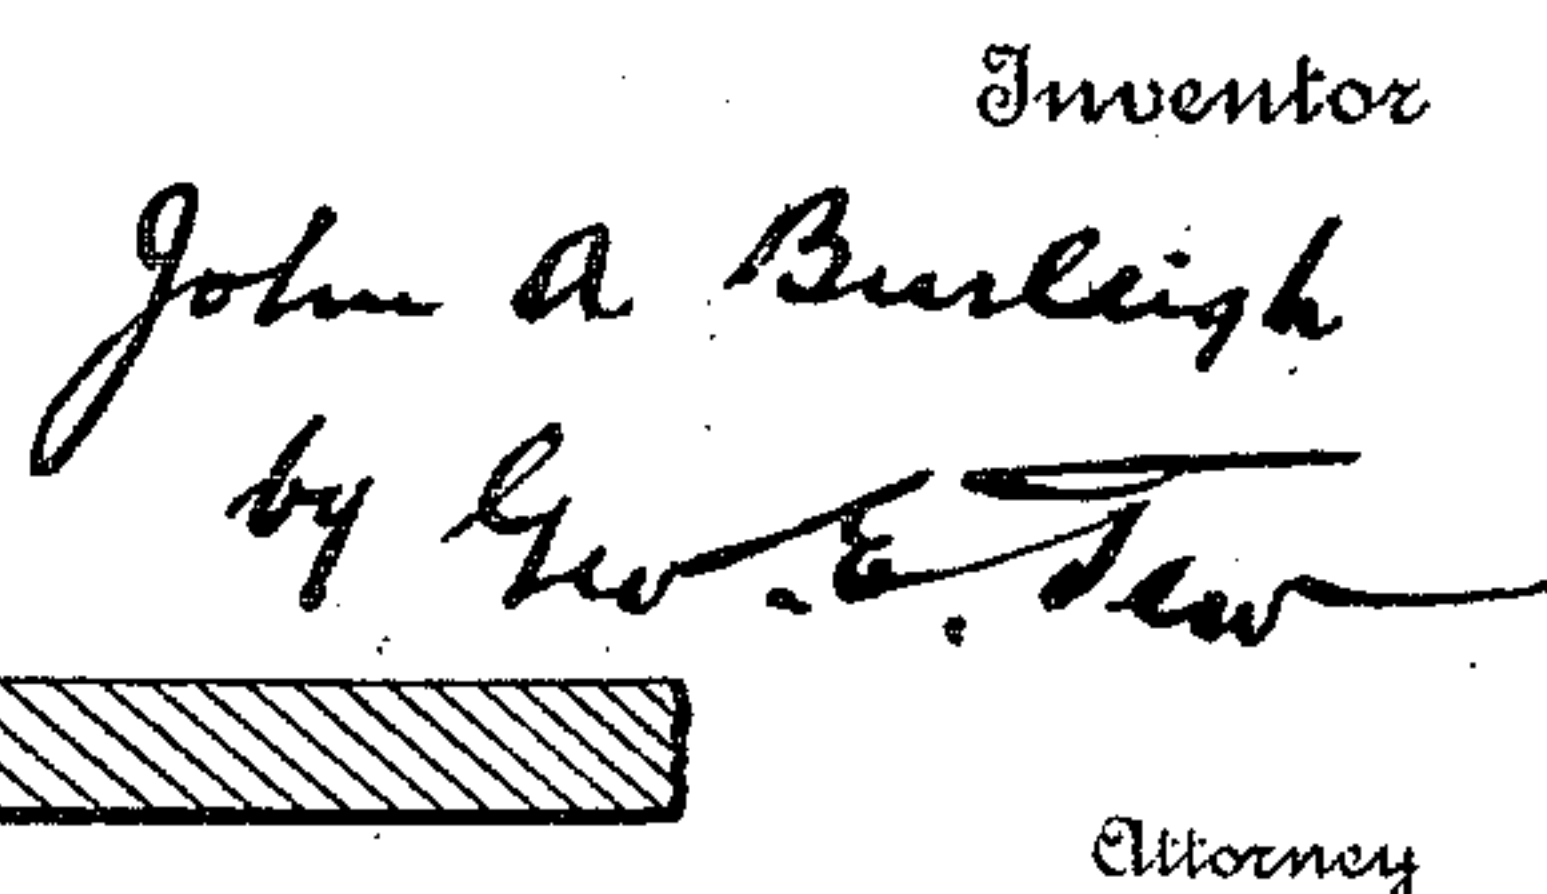 Inventor
John A Burleigh
by Geo. E. Tew
Attorney